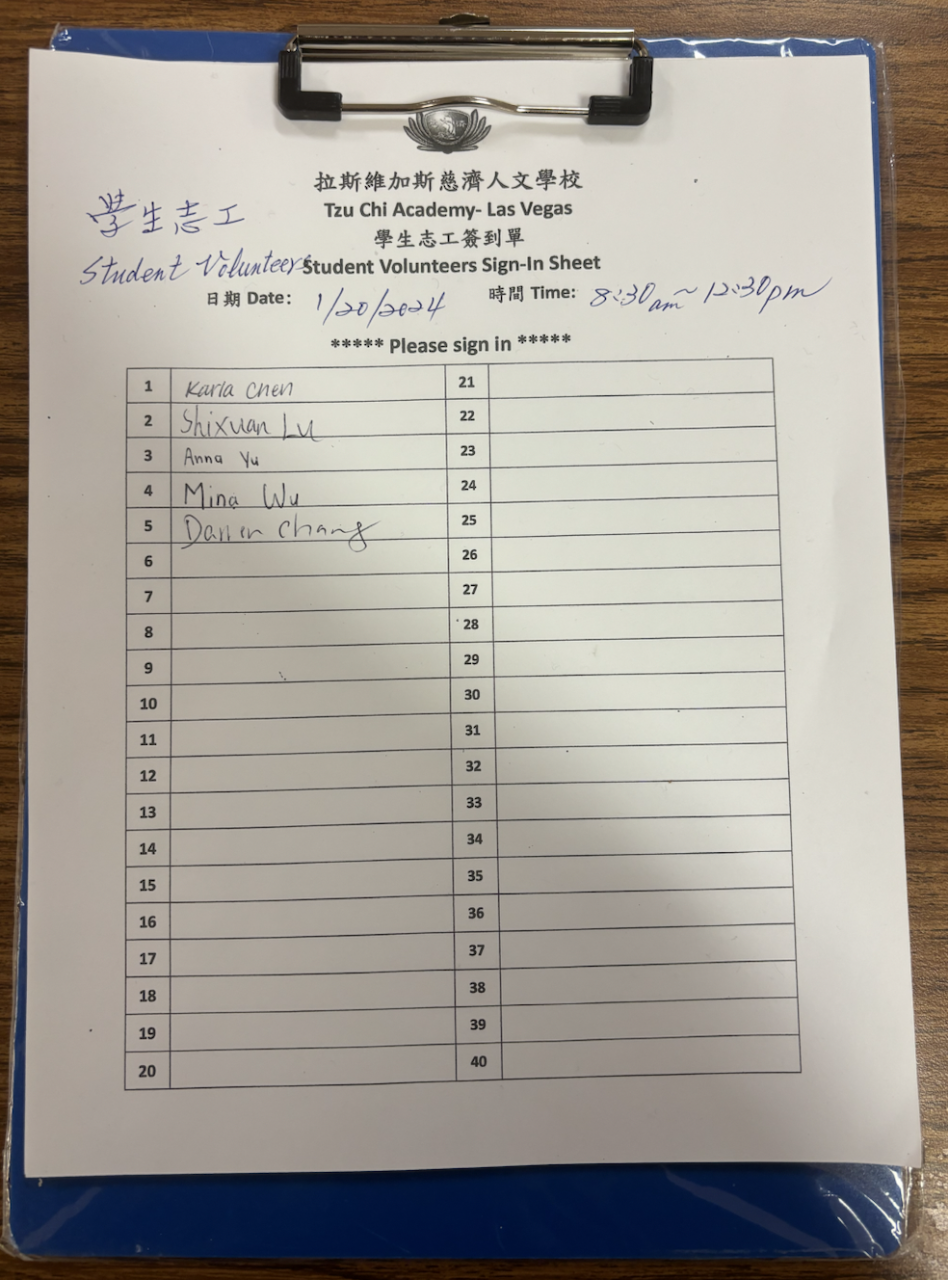 拉斯維加斯慈濟人文學校
Tzu Chi Academy- Las Vegas
學生志工
學生志工簽到單
Student Volunteers
Student Volunteers Sign-In Sheet
日期 Date: 1/20/2024 時間 Time: 8:30am ~ 12:30pm
***** Please sign in *****
1 Karla Chen 21
2 Shixuan Lu 22
3 Anna Yu 23
4 Mina Wu 24
5 Darren Chang 25
6 26
7 27
8 28
9 29
10 30
11 31
12 32
13 33
14 34
15 35
16 36
17 37
18 38
19 39
20 40